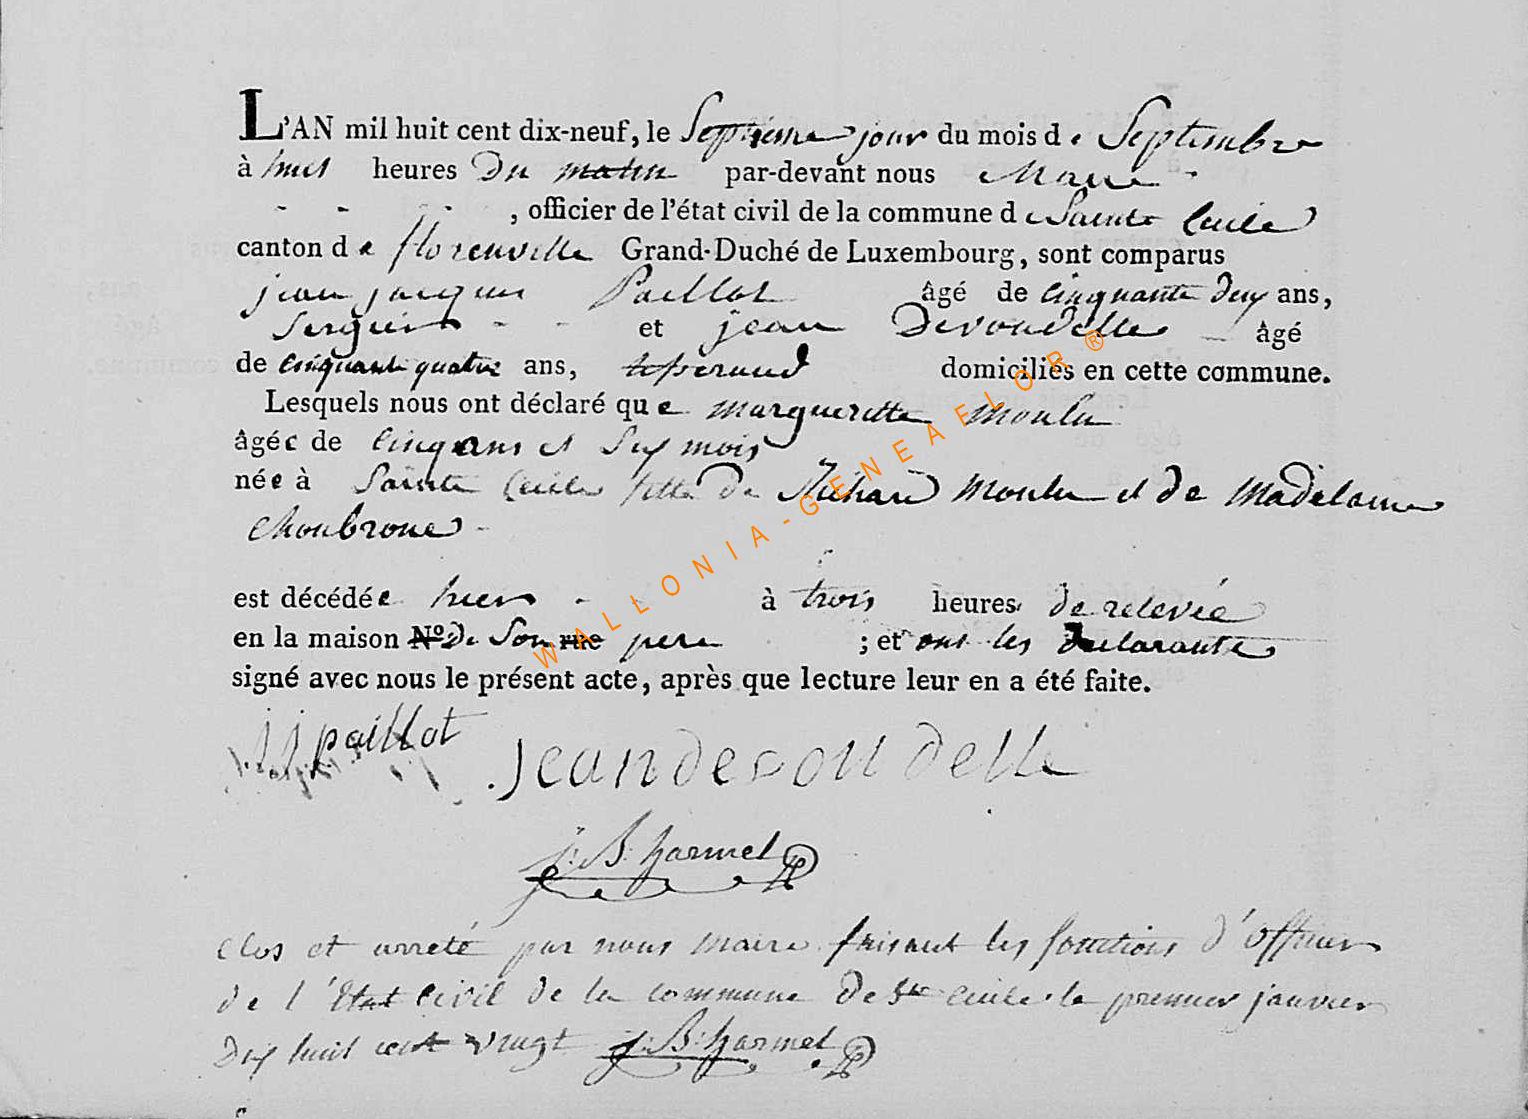 L'AN mil huit cent dix-neuf, le Septieme jour du mois de Septembre
à huit heures Du matin par-devant nous Maire -
- - - - , officier de l'état civil de la commune de Sainte Cecile
canton de florenville Grand-Duché de Luxembourg, sont comparus
jean jacques Paillot âgé de cinquante deux ans,
Sergier - - et jean Devoudelle - âgé
de cinquante quatre ans, domiciliés en cette commune.
Lesquels nous ont déclaré que marguerette moulu
âgée de cinq ans et Six mois
née à Sainte Cecile fille de Richard moulu et de Madelaine
Choubroue -
est décédée hier - à trois heures de relevée
en la maison No. De Son rue pere ; et ont les declarants
signé avec nous le présent acte, après que lecture leur en a été faite.
jj paillot jean devoudelle
j: B: harmel
Clos et arreté par nous maire faisant les fonctions d'officier
de l'Etat civil de la commune de Ste Cecile le premier janvier
Dix huit cent vingt j: B: harmel
WALLONIA-GENEAELOR®